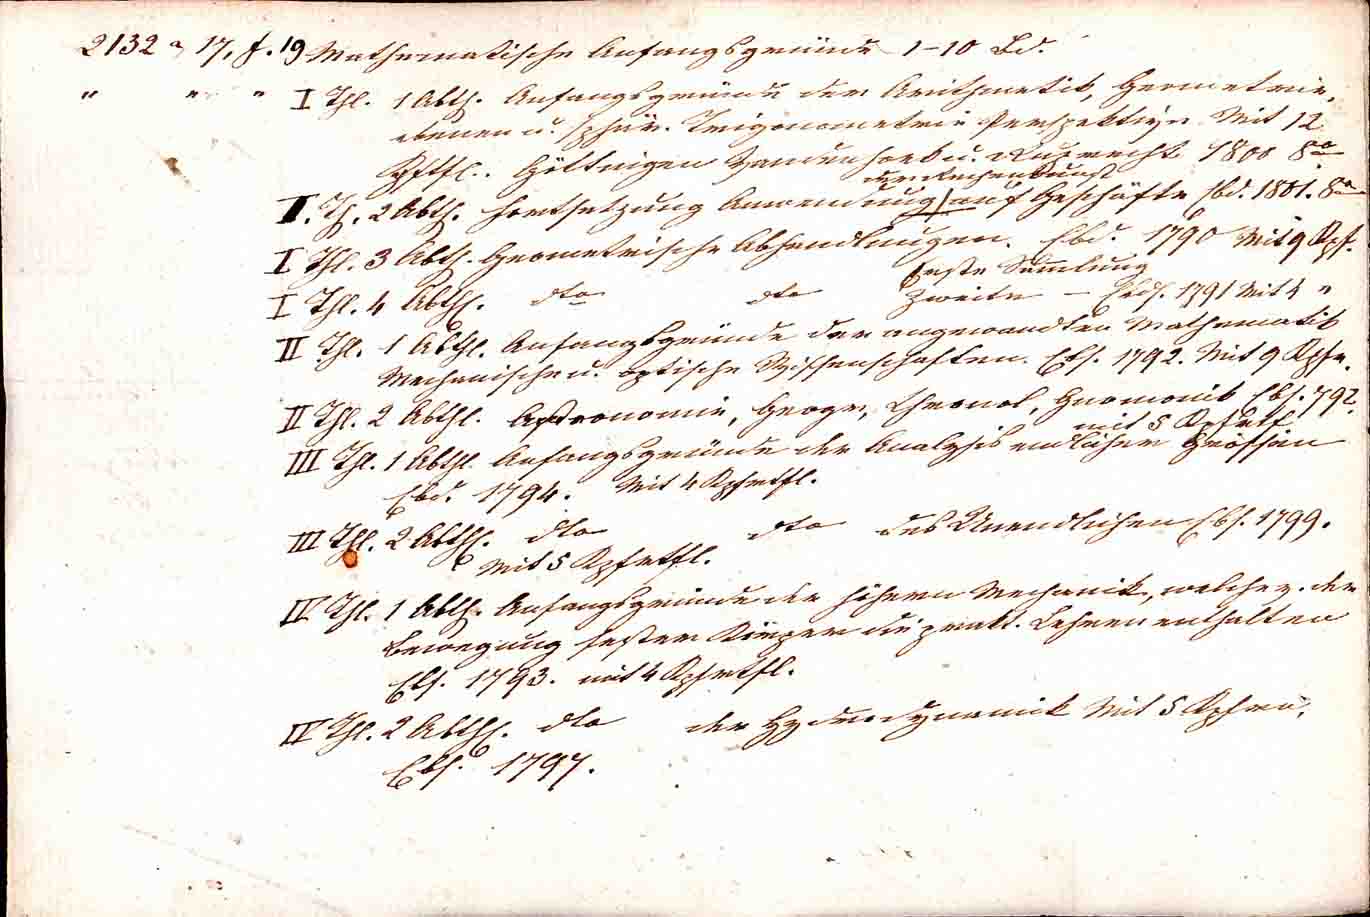 2132 a 17. f. 19 Mathematische Anfangsgründe 1-10 Bd.
" " " I Thl. 1 Abth. Anfangsgründe der Arithmetik, Geometrie,
ebenen u. sphär. Trigonometrie Perspektive Mit 12
Kpftfl. Göttingen Vandenhoek u. Ruprecht 1800 8o
der Rechenkunst
II. Th. 2 Abth. Fortsetzung Anwendung auf Geschäfte Ebd. 1801. 8o
I Thl. 3 Abth. Geometrische Abhandlungen. Ebd. 1790 Mit 9 Kpf.
Erste Sammlung
I Thl. 4 Abthl. dto dto Zweite — Ebds. 1791 Mit 4 "
II Thl. 1 Abthl. Anfangsgründe der angewandten Mathematik
Mechanische u. optische Wissenschaften. Ebs. 1792. Mit 9 Kpfr.
II Thl. 2 Abthl. Astronomie, Geogr, Chronol, Gnomonik Ebs. 792.
mit 5 Kpfrtf
III Thl. 1 Abthl. Anfangsgründe der Analysis endlicher Größen
Ebd. 1794. Mit 4 Kpfrtfl.
III Thl. 2 Abthl. dto dto des Unendlichen Ebs. 1799.
Mit 5 Kpfrtfl.
IV Thl. 1 Abth. Anfangsgründe der höhern Mechanik, welche v. der
Bewegung fester Körper die prakt. Lehren enthalten
Ebs. 1793. mit 4 Kpfrtfl.
IV Thl. 2 Abthl. dto der Hydrodynamik Mit 5 Kpfrn.
Ebs. 1797.